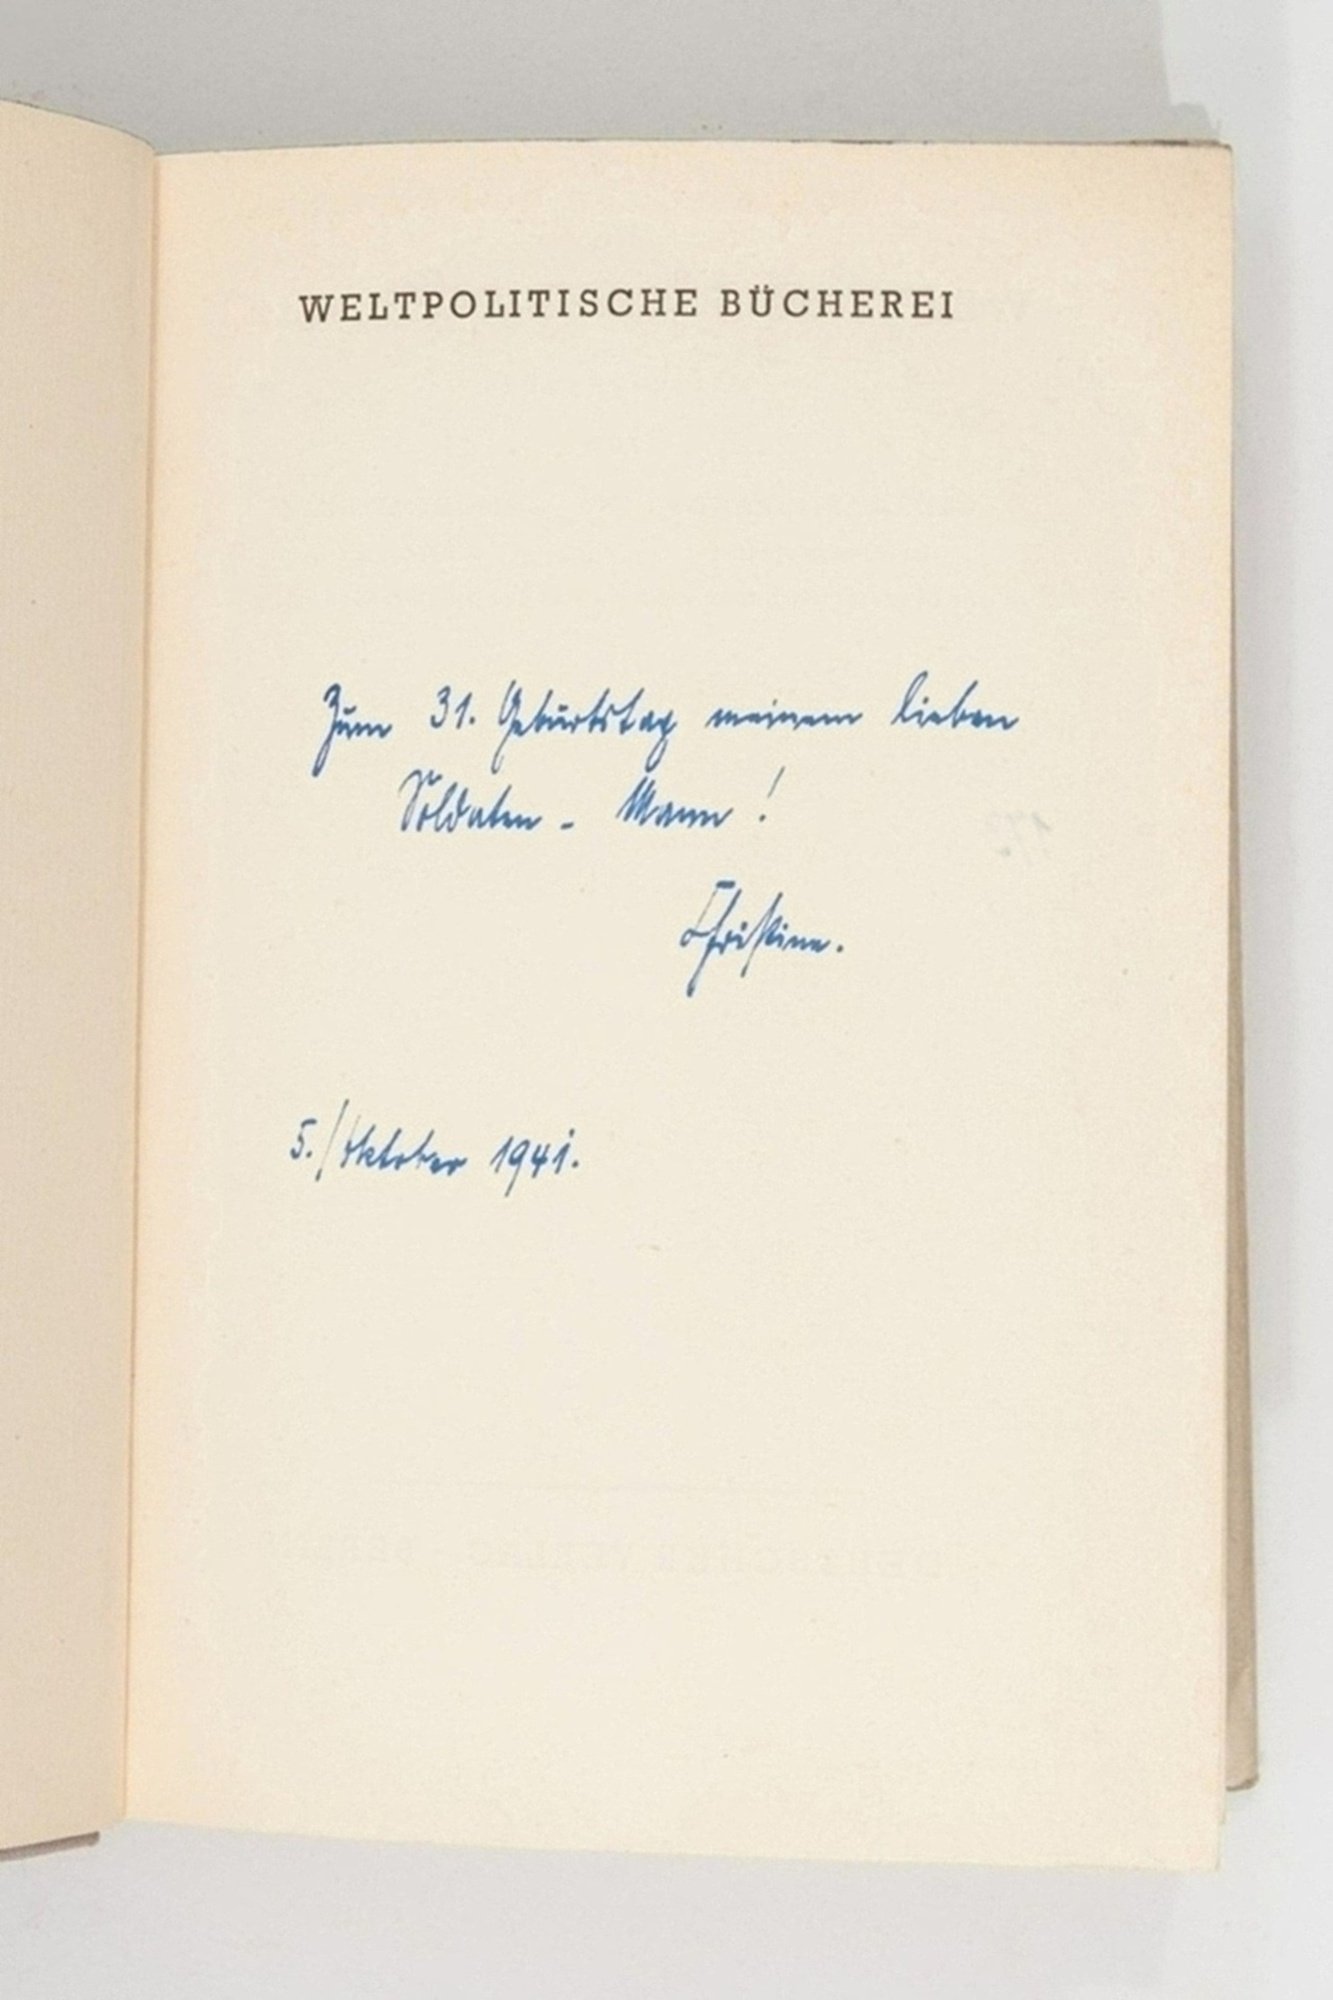 WELTPOLITISCHE BÜCHEREI
Zum 31. Geburtstag meinem lieben
Soldaten - Mann!
Christine.
5. Oktober 1941.